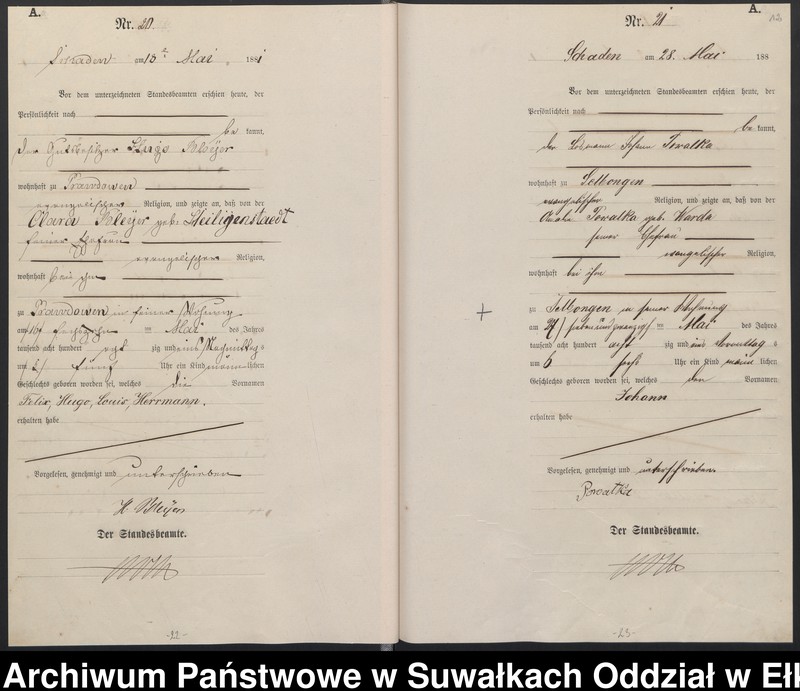 A.
Nr. 20
Schaden am 15ten Mai 1881
Vor dem unterzeichneten Standesbeamten erschien heute, der
Persönlichkeit nach
be kannt,
der Gutsbesitzer Hugo
wohnhaft zu Prawdowen
evangelischer Religion, und zeigte an, daß von der
Clara geb: Heiligenstaedt
seiner Ehefrau
evangelischer Religion,
wohnhaft bei ihm
zu Prawdowen in seiner Wohnung
am fünfzehn ten Mai des Jahres
tausend acht hundert acht zig und eins Nachmittag s
um fünf Uhr ein Kind männ lichen
Geschlechts geboren worden sei, welches die Vornamen
Felix, Hugo, Louis, Herrmann.
erhalten habe
Vorgelesen, genehmigt und unterschrieben
H.
Der Standesbeamte.
-22-
A.
Nr. 21
Schaden am 28. Mai 188
Vor dem unterzeichneten Standesbeamten erschien heute, der
Persönlichkeit nach
be kannt,
der Losmann Johann
wohnhaft zu Selbongen
evangelischer Religion, und zeigte an, daß von der
geb. Warda
seiner Ehefrau
evangelischer Religion,
wohnhaft bei ihm
zu Selbongen in seiner Wohnung
am 27/ siebenundzwanzig/ ten Mai des Jahres
tausend acht hundert acht zig und eins Vormittag s
um 6 sechs Uhr ein Kind männ lichen
Geschlechts geboren worden sei, welches den Vornamen
Johann
erhalten habe
Vorgelesen, genehmigt und unterschrieben
Der Standesbeamte.
-23-
Archiwum Państwowe w Suwałkach Oddział w Ełk